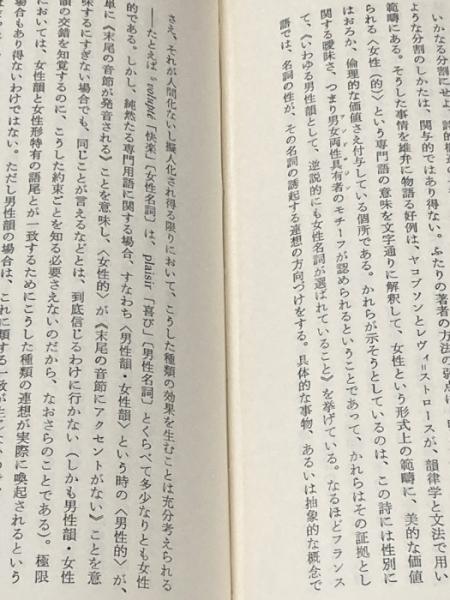 いかなる分割にせよ、
ような分割のしかたは、関与的ではあり得ない。ふたりの著者の方法の弱点は、
範疇にある。そうした事情を雄弁に物語る好例は、ヤコブソンとレヴィ＝ストロースが、韻律学と文法で用い
られる〈女性（的）〉という専門語の意味を文字通りに解釈して、女性という形式上の範疇に、美的な価値
はおろか、倫理的な価値さえ付与している個所である。かれらが示そうとしているのは、この詩には性別に
関する曖昧さ、つまり男女両性具有者のモチーフが認められるということであって、かれらはその証拠とし
て、《いわゆる男性韻として、逆説的にも女性名詞が選ばれていること》を挙げている。なるほどフランス
語では、名詞の性が、その名詞の誘起する連想の方向づけをする。具体的な事物、あるいは抽象的な概念で
さえ、それが人間化ないし擬人化され得る限りにおいて、こうした種類の効果を生むことは充分考えられる
——たとえば volupté「快楽」〔女性名詞〕は、plaisir「喜び」〔男性名詞〕とくらべて多少なりとも女性
的である。しかし、純然たる専門用語に関する場合、すなわち〈男性韻・女性韻〉という時の〈男性的〉が、
単に《末尾の音節が発音される》ことを意味し、〈女性的〉が《末尾の音節にアクセントがない》ことを意
味するにすぎない場合でも、同じことが言えるなどとは、到底信じるわけに行かない（しかも男性韻・女性
韻の交錯を知覚するのに、こうした約束ごとを知る必要さえないのだから、なおさらのことである）。極限
においては、女性韻と女性形特有の語尾とが一致するためにこうした種類の連想が実際に喚起されるという
場合もあり得ないわけではない。ただし男性韻の場合は、これに類する一致が